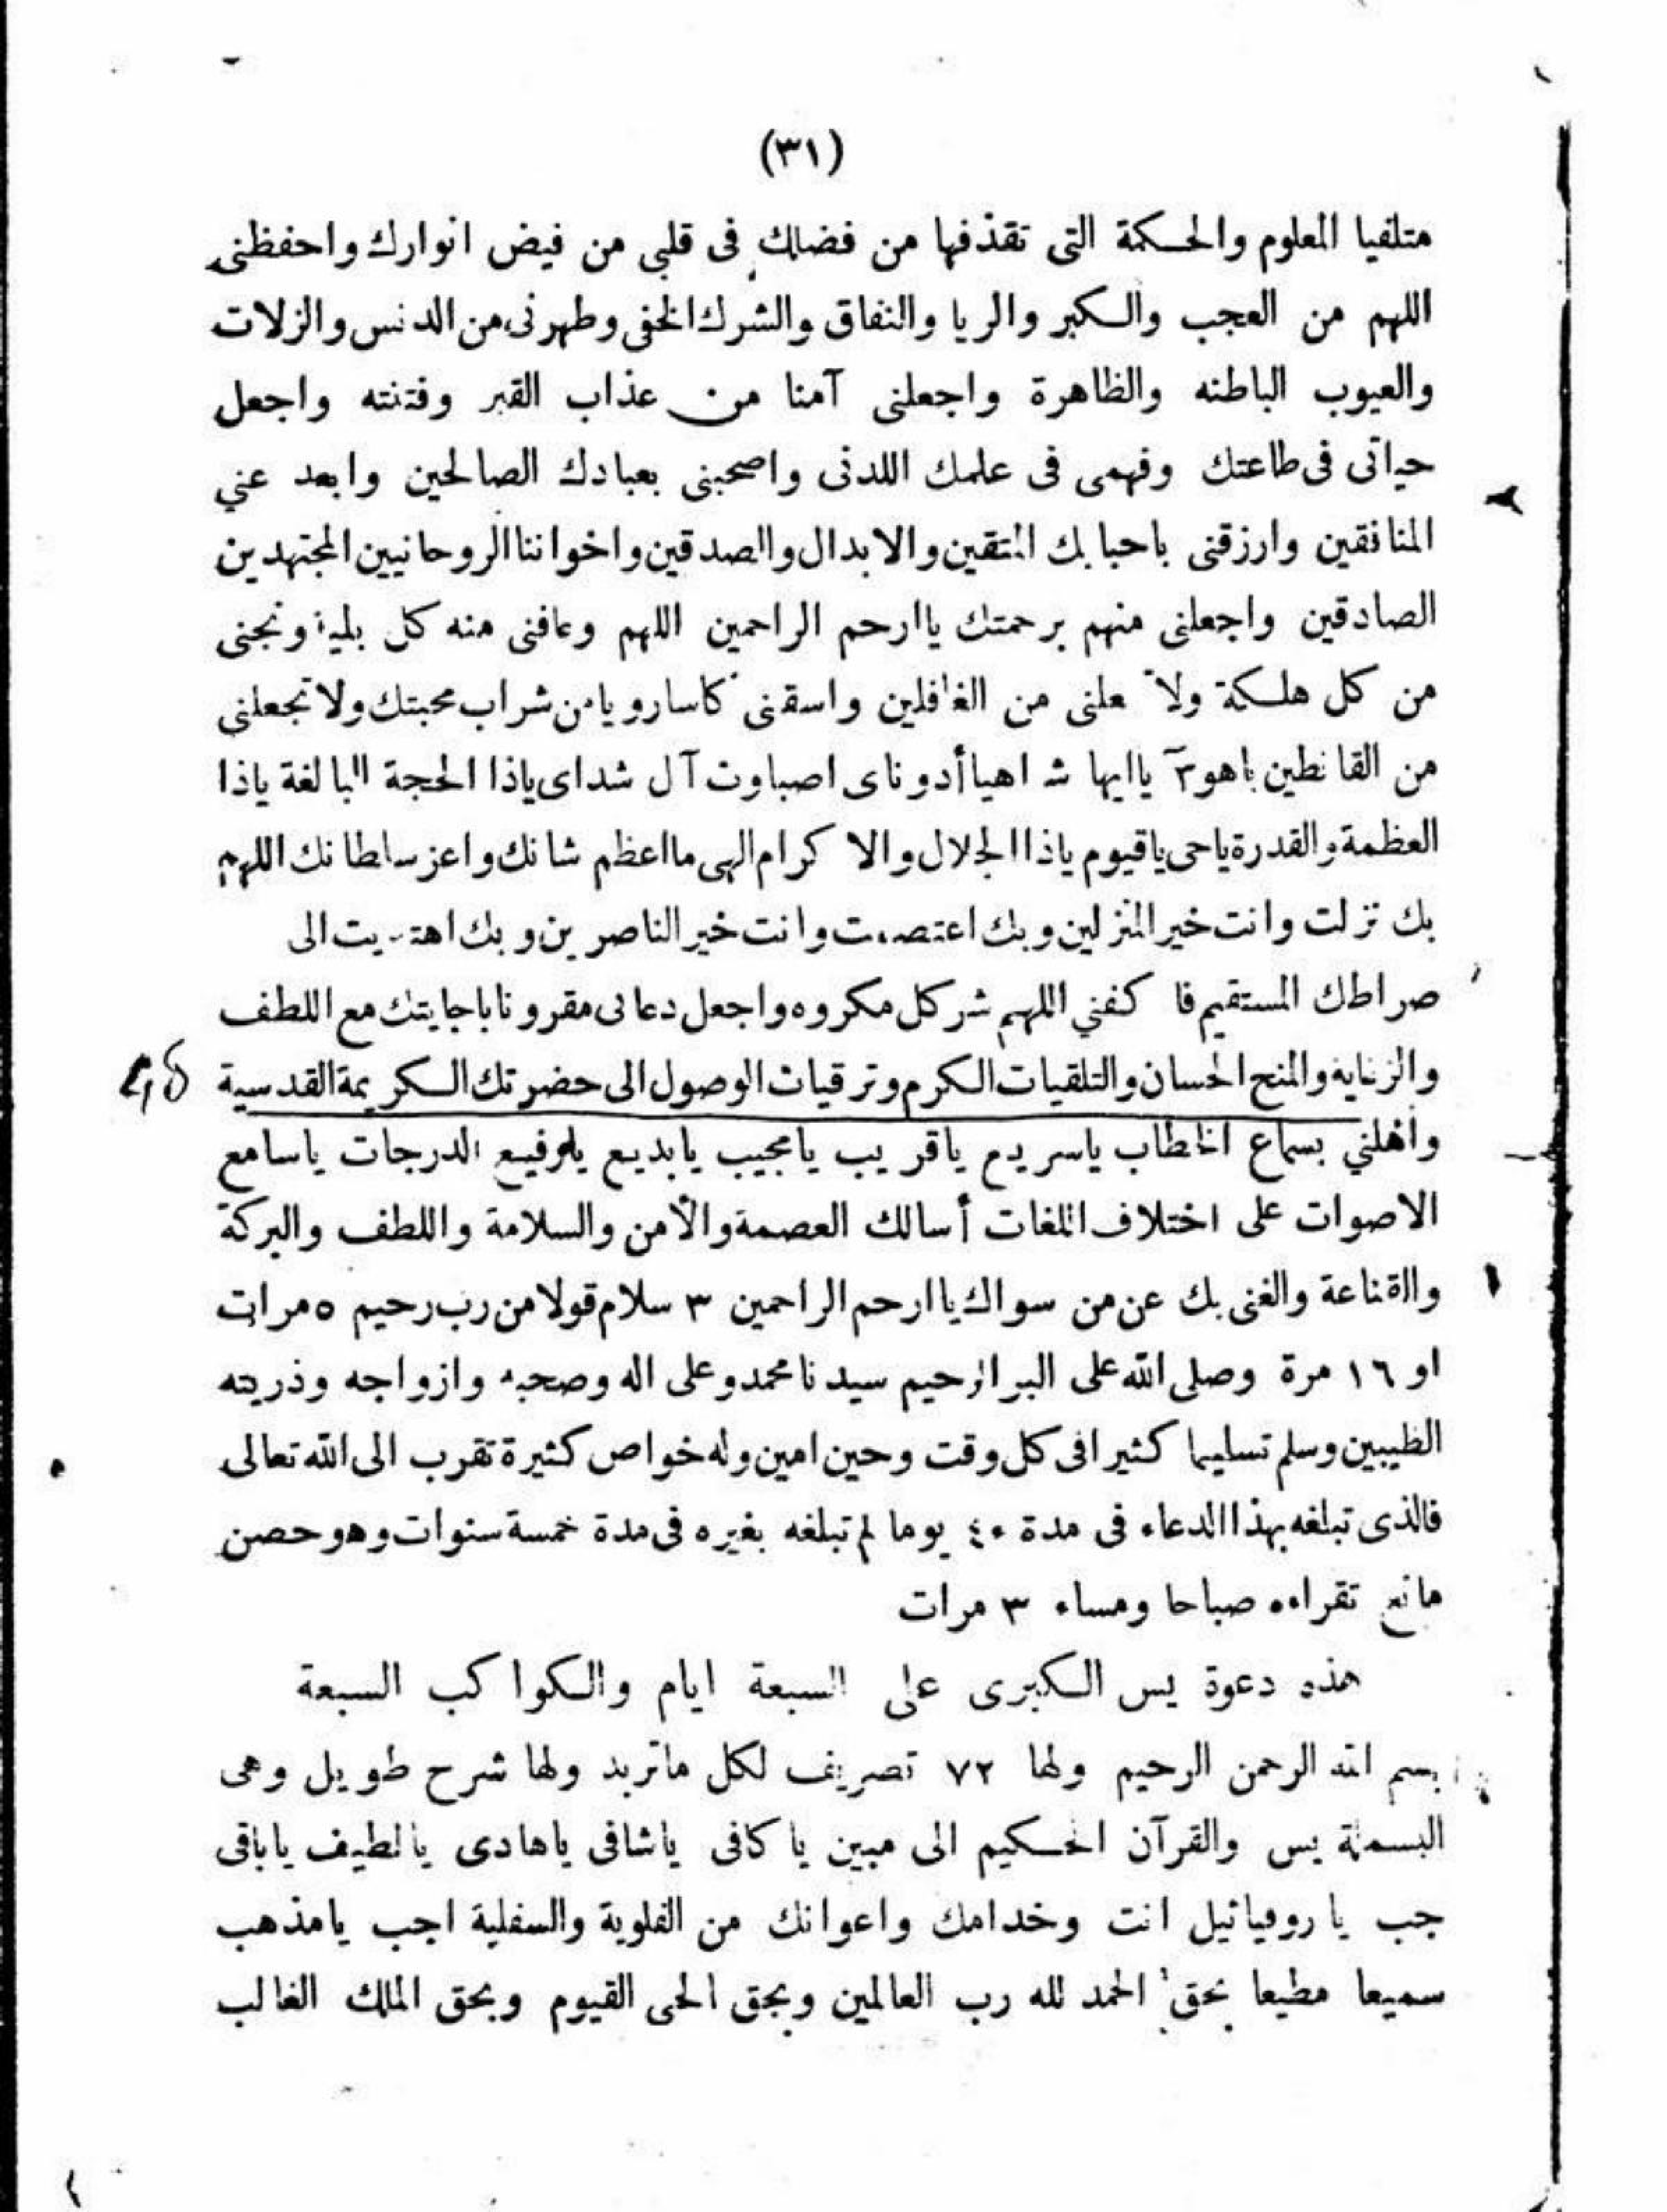 (٣١)
متلقيا العلوم والحكمة التى تقذفها من فضلك فى قلبى من فيض انوارك واحفظنى
اللهم من العجب والكبر والريا والنفاق والشرك الخفى وطهرنى من الدنس والزلات
والعيوب الباطنه والظاهرة واجعلنى آمنا من عذاب القبر وفتنته واجعل
حياتى فى طاعتك وفهمى فى علمك اللدنى واصحبنى بعبادك الصالحين وابعد عني
المنافقين وارزقنى باحبابك المتقين والابدال والصدقين واخواننا الروحانيين المجتهدين
الصادقين واجعلنى منهم برحمتك ياارحم الراحمين اللهم وعافنى منه كل بلية ونجنى
من كل هلكة ولا علنى من الغافلين واسقنى كاسا رويا من شراب محبتك ولا تجعلنى
من القانطين ياهو ٣ ياايها شه اهيا أدوناى اصباوت آل شداى ياذا الحجة البالغة ياذا
العظمة والقدرة ياحى ياقيوم ياذا الجلال والاكرام الهى مااعظم شانك واعز سلطانك اللهم
بك نزلت وانت خير المنزلين وبك اعتصمت وانت خير الناصرين وبك اهتديت الى
صراطك المستقيم فاكفني اللهم شر كل مكروه واجعل دعائى مقرونا باجابتك مع اللطف
والمنح الحسان والتلقيات الكرم وترقيات الوصول الى حضرتك الكريمة القدسية
واهلني بسماع الخطاب ياسريع ياقريب يامجيب يابديع يارفيع الدرجات ياسامع
الاصوات على اختلاف اللغات أسالك العصمة والأمن والسلامة واللطف والبركة
والقناعة والغنى بك عن من سواك ياارحم الراحمين ٣ سلام قولا من رب رحيم ٥ مرات
او ١٦ مرة وصلى الله على البر الرحيم سيدنا محمد وعلى اله وصحبه وازواجه وذريته
الطيبين وسلم تسليما كثيرا فى كل وقت وحين امين وله خواص كثيرة تقرب الى الله تعالى
فالذى تبلغه بهذا الدعاء فى مدة ٤٠ يوما لم تبلغه بغيره فى مدة خمسة سنوات وهو حصن
مانع تقراءه صباحا ومساء ٣ مرات
هذه دعوة يس الكبرى على السبعة ايام والكواكب السبعة
بسم الله الرحمن الرحيم ولها ٧٢ تصريف لكل ماتريد ولها شرح طويل وهى
البسملة يس والقرآن الحكيم الى مبين ياكافى ياشافى ياهادى يالطيف ياباقى
جب ياروفيائيل انت وخدامك واعوانك من العلوية والسفلية اجب يامذهب
سميعا مطيعا بحق الحمد لله رب العالمين وبحق الحى القيوم وبحق الملك الغالب